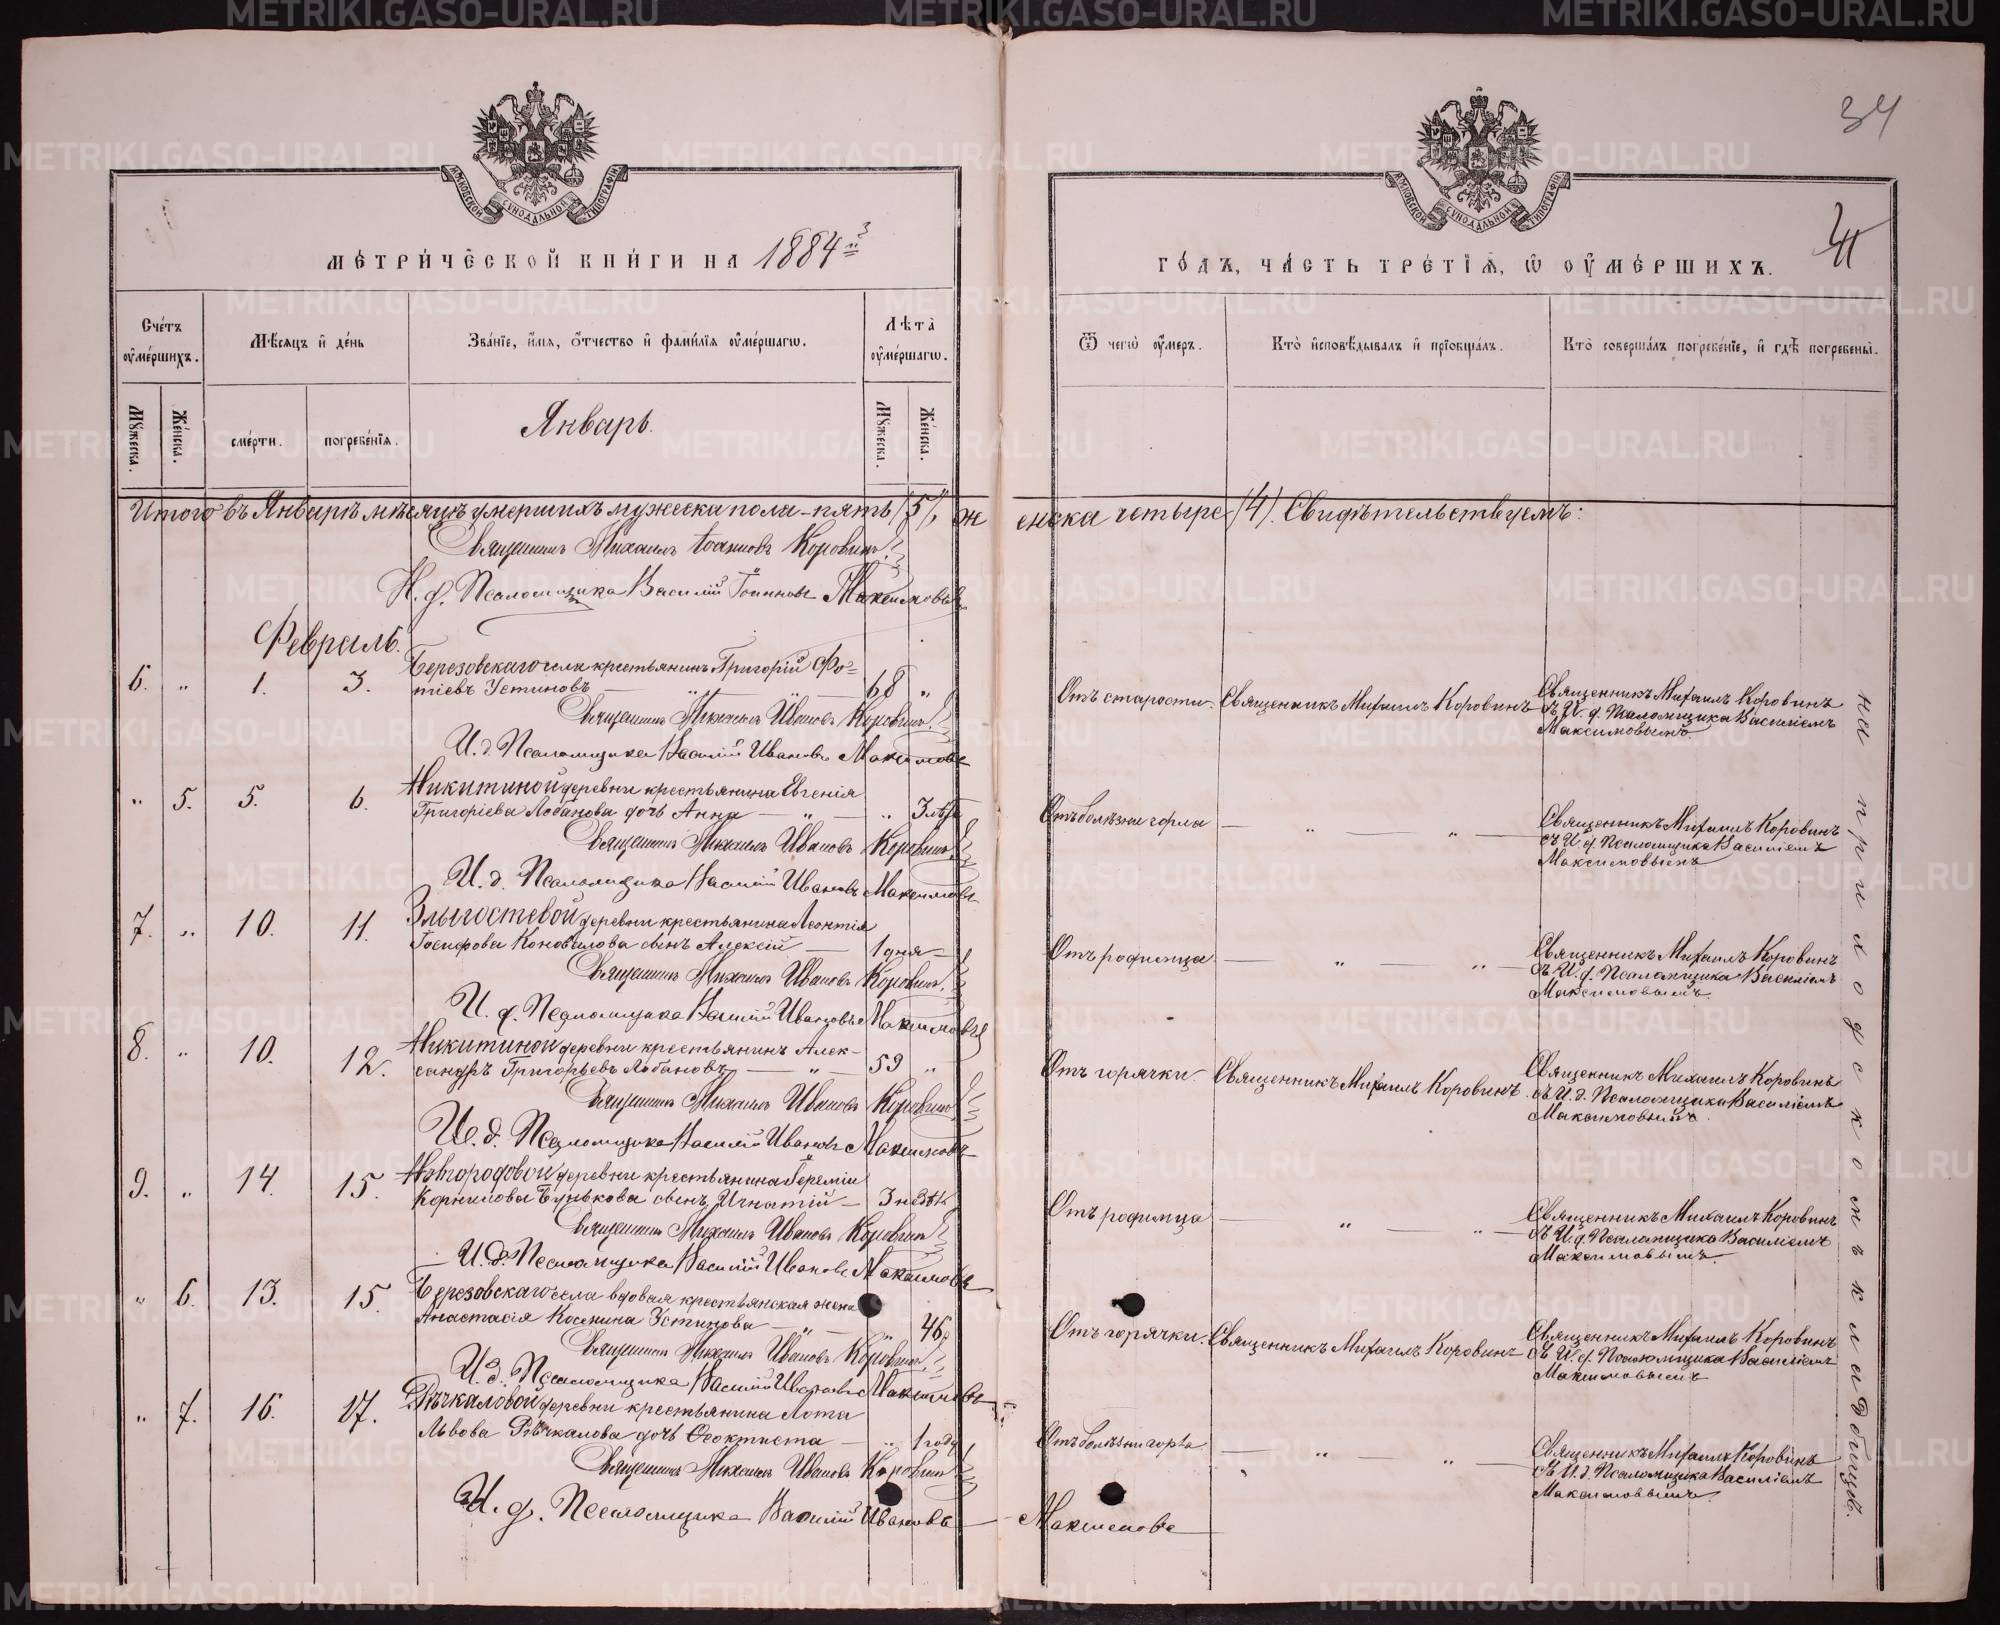 34
МОСКОВСКОЙ СѴНОДАЛЬНОЙ ТИПОГРАФІИ
МОСКОВСКОЙ СѴНОДАЛЬНОЙ ТИПОГРАФІИ
МЕТРИЧЕСКОЙ КНИГИ НА 1884й
ГОДЪ, ЧАСТЬ ТРЕТІЯ, Ѡ ОУМЕРШИХЪ.
Счетъ оумершихъ.
Мѣсяцъ и день
Званіе, имя, отчество и фамилія оумершагѡ.
Лѣта оумершагѡ.
Ѿ чегѡ оумеръ.
Кто исповѣдывалъ и пріобщалъ.
Кто совершалъ погребеніе, и гдѣ погребены.
Мужеска.
Женска.
смерти.
погребенія.
Январь.
Мужеска.
Женска.
Итого въ Январѣ мѣсяцѣ умершихъ мужеска пола - пять /5/, женска четыре /4/. Свидѣтельствуемъ:
Священникъ Михаилъ Іоанновъ Коровинъ
И. д. Псаломщика Василій Іоанновъ Максимовъ
Февраль.
6. „ 1. 3. Березовскаго села крестьянинъ Григорій Фо-
тіевъ Устиновъ — „ — 68 „
Отъ старости. Священникъ Михаилъ Коровинъ
Священникъ Михаилъ Коровинъ
съ И. д. Псаломщика Василіемъ
Максимовымъ
Священникъ Михаилъ Ивановъ Коровинъ
И. д. Псаломщика Василій Ивановъ Максимовъ
„ 5. 5. 6. Никитиной деревни крестьянина Евгенія
Григоріева Лобанова дочь Анна — „ — „ 3 лѣтъ
Отъ болѣзни горла — „ — „ —
Священникъ Михаилъ Коровинъ
съ И. д. Псаломщика Василіемъ
Максимовымъ
Священникъ Михаилъ Ивановъ Коровинъ
И. д. Псаломщика Василій Ивановъ Максимовъ
7. „ 10. 11. Злыгостевой деревни крестьянина Леонтія
Іосифова Коновалова сынъ Алексій — 1 дня —
Отъ родимца — „ — „ —
Священникъ Михаилъ Коровинъ
съ И. д. Псаломщика Василіемъ
Максимовымъ.
Священникъ Михаилъ Ивановъ Коровинъ
И. д. Псаломщика Василій Ивановъ Максимовъ
8. „ 10. 12. Никитиной деревни крестьянинъ Алек-
сандръ Григорьевъ Лобановъ — „ — 59 „
Отъ горячки. Священникъ Михаилъ Коровинъ.
Священникъ Михаилъ Коровинъ
съ И. д. Псаломщика Василіемъ
Максимовымъ.
Священникъ Михаилъ Ивановъ Коровинъ
И. д. Псаломщика Василій Ивановъ Максимовъ
9. „ 14. 15. Новгородовой деревни крестьянина Іереміи
Корнилова Бунькова сынъ Игнатій — 3 нед.
Отъ родимца — „ — „ —
Священникъ Михаилъ Коровинъ
съ И. д. Псаломщика Василіемъ
Максимовымъ.
Священникъ Михаилъ Ивановъ Коровинъ
И. д. Псаломщика Василій Ивановъ Максимовъ
„ 6. 13. 15. Березовскаго села вдовая крестьянская жена
Анастасія Космина Устинова — „ — „ 46
Отъ горячки. Священникъ Михаилъ Коровинъ
Священникъ Михаилъ Коровинъ
съ И. д. Псаломщика Василіемъ
Максимовымъ
Священникъ Михаилъ Ивановъ Коровинъ
И. д. Псаломщика Василій Ивановъ Максимовъ
„ 7. 16. 17. Рѣчкаловой деревни крестьянина Лота
Львова Рѣчкалова дочь Ѳеоктиста — „ 1 году
Отъ болѣзни горла — „ — „ —
Священникъ Михаилъ Коровинъ
съ И. д. Псаломщика Василіемъ
Максимовымъ.
Священникъ Михаилъ Ивановъ Коровинъ
И. д. Псаломщика Василій Ивановъ — Максимовъ
на приходскомъ кладбищѣ.
METRIKI.GASO-URAL.RU